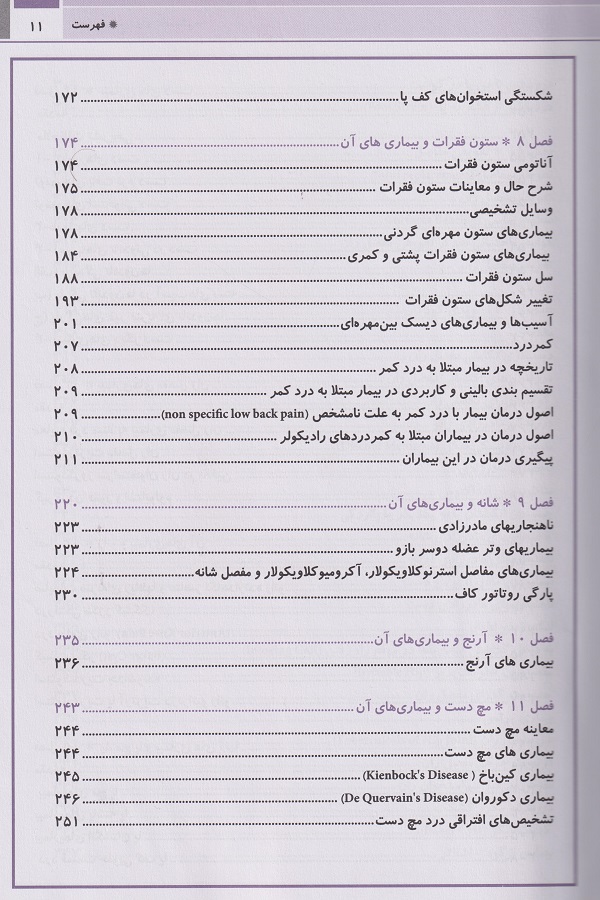 * فهرست ۱۱
شکستگی استخوان‌های کف پا ........ ۱۷۲
فصل ۸ * ستون فقرات و بیماری های آن ........ ۱۷۴
آناتومی ستون فقرات ........ ۱۷۴
شرح حال و معاینات ستون فقرات ........ ۱۷۵
وسایل تشخیصی ........ ۱۷۸
بیماری‌های ستون مهره‌ای گردنی ........ ۱۷۸
بیماری‌های ستون فقرات پشتی و کمری ........ ۱۸۴
سل ستون فقرات ........ ۱۸۸
تغییر شکل‌های ستون فقرات ........ ۱۹۳
آسیب‌ها و بیماری‌های دیسک بین‌مهره‌ای ........ ۲۰۱
کمردرد ........ ۲۰۷
تاریخچه در بیمار مبتلا به درد کمر ........ ۲۰۸
تقسیم بندی بالینی و کاربردی در بیمار مبتلا به درد کمر ........ ۲۰۹
اصول درمان بیمار با درد کمر به علت نامشخص (non specific low back pain) ........ ۲۰۹
اصول درمان در بیماران مبتلا به کمردردهای رادیکولر ........ ۲۱۰
پیگیری درمان در این بیماران ........ ۲۱۱
فصل ۹ * شانه و بیماری‌های آن ........ ۲۲۰
ناهنجاریهای مادرزادی ........ ۲۲۳
بیماریهای وتر عضله دوسر بازو ........ ۲۲۳
بیماری‌های مفاصل استرنوکلاویکولار، آکرومیوکلاویکولار و مفصل شانه ........ ۲۲۴
پارگی روتاتور کاف ........ ۲۳۰
فصل ۱۰ * آرنج و بیماری‌های آن ........ ۲۳۵
بیماری های آرنج ........ ۲۳۶
فصل ۱۱ * مچ دست و بیماری‌های آن ........ ۲۴۳
معاینه مچ دست ........ ۲۴۴
بیماری های مچ دست ........ ۲۴۴
بیماری کین‌باخ (Kienbock's Disease) ........ ۲۴۵
بیماری دکوروان (De Quervain's Disease) ........ ۲۴۶
تشخیص‌های افتراقی درد مچ دست ........ ۲۵۱